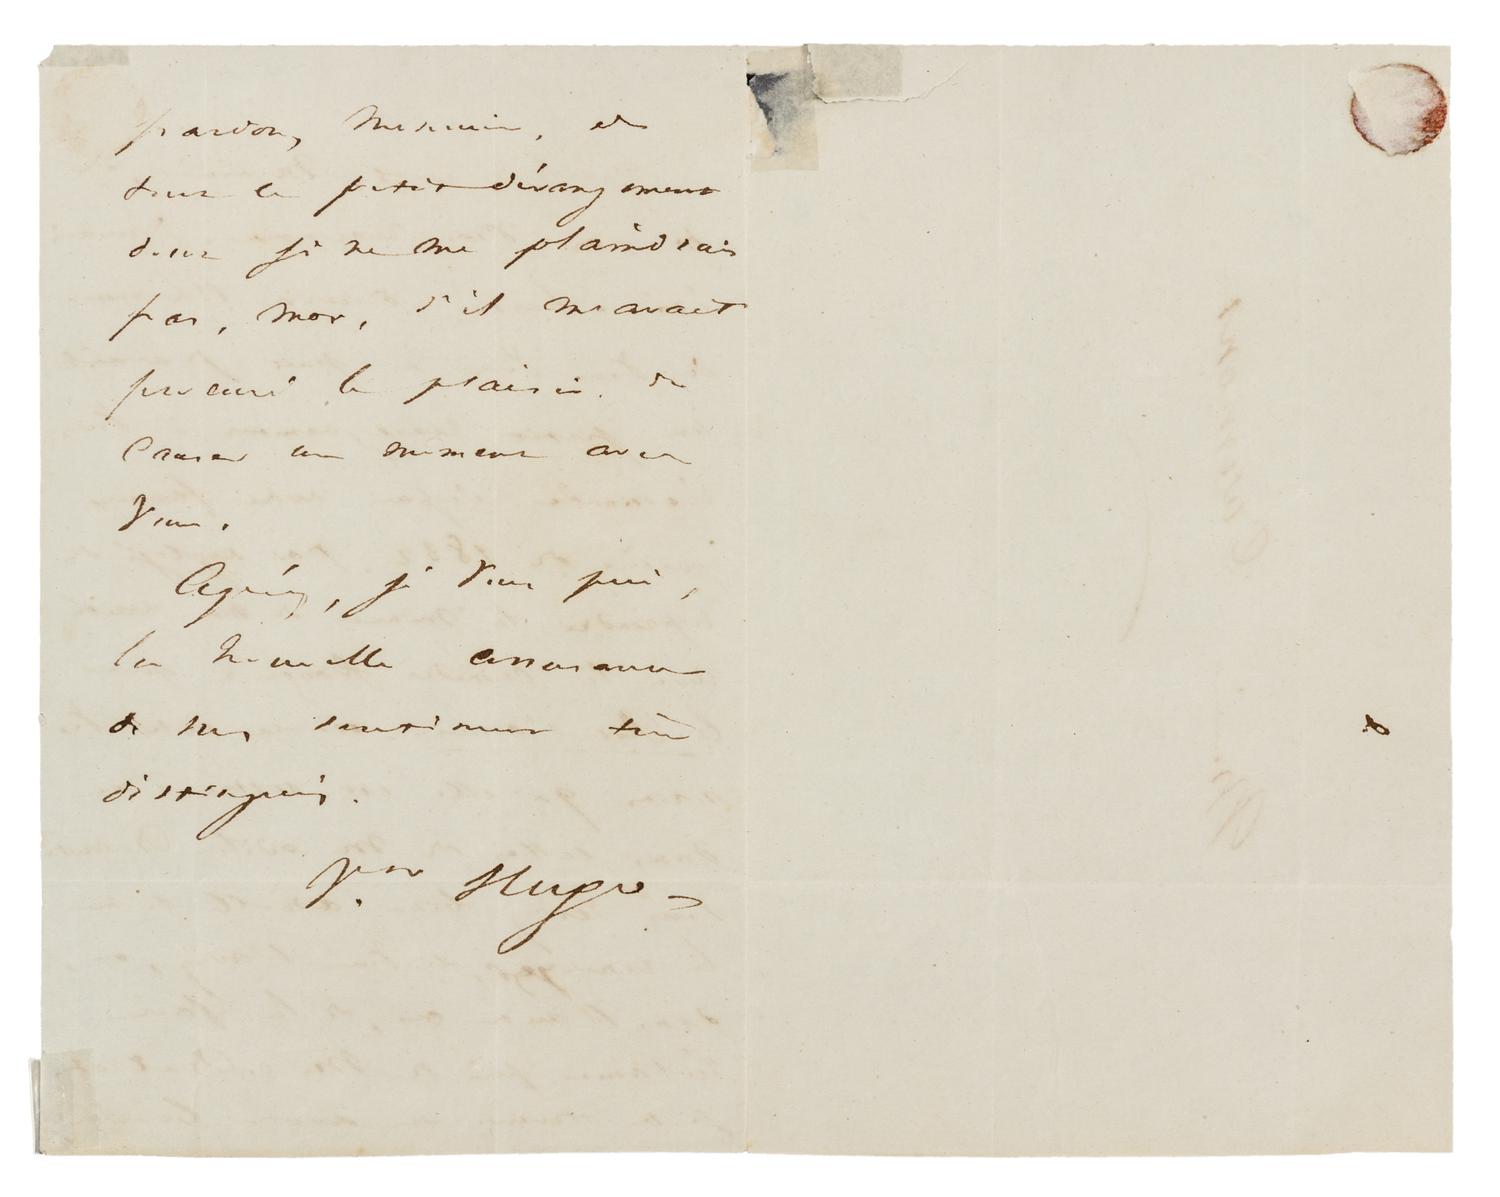 pardon, Monsieur, de
tout ce petit dérangement
dont je ne me plaindrais
pas, moi, s'il m'avait
procuré le plaisir de
causer un moment avec
vous.
Agréez, je vous prie,
la nouvelle assurance
de mes sentimens très
distingués.
Vor Hugo